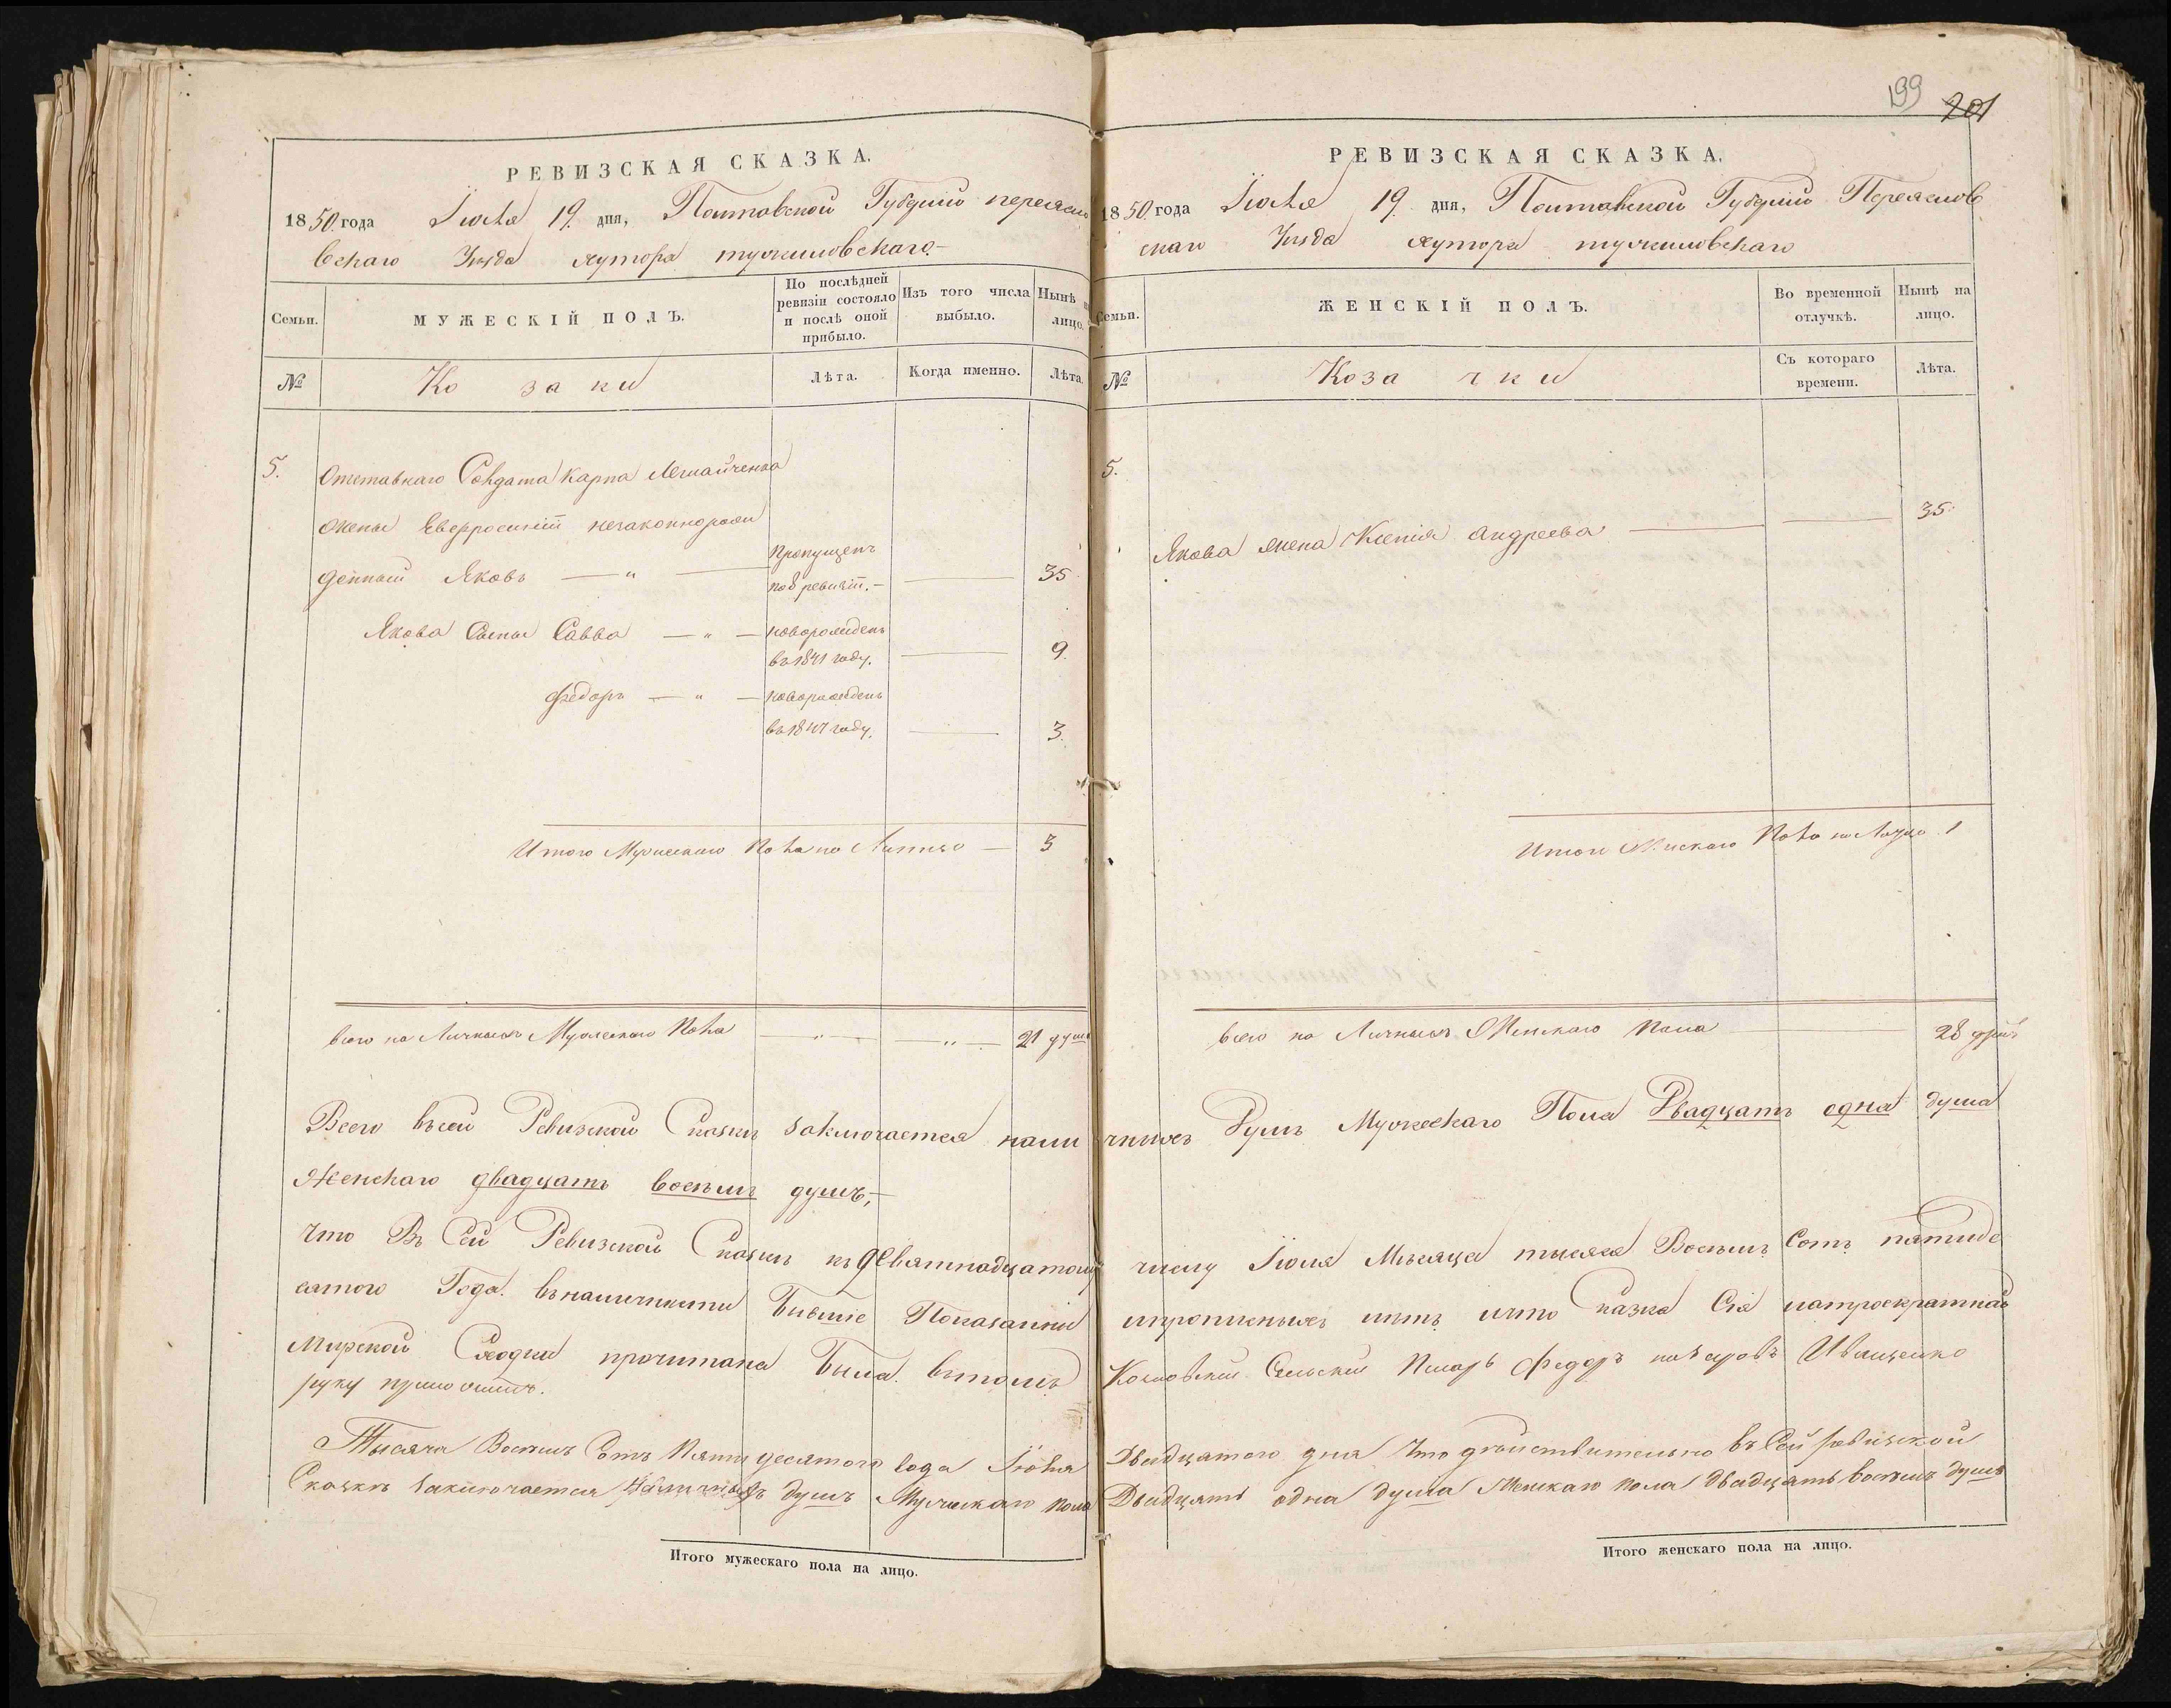 199 201
РЕВИЗСКАЯ СКАЗКА.
1850 года Іюля 19. дня, Полтавской Губерніи переясла
вскаго Уѣзда хутора
Семьи. МУЖЕСКІЙ ПОЛЪ. По послѣдней ревизіи состояло и послѣ оной прибыло. Изъ того числа выбыло. Нынѣ на лицо.
№ Козаки Лѣта. Когда именно. Лѣта.
5. Отставнаго Солдата Карпа
жены Евфросиніи незаконнорож
денный Яковъ — „ — Пропущенъ по 8 ревизіи. — 35
Якова Сыны Савва — „ — новорожденъ въ 1841 году. — 9.
Федоръ — „ — новорожденъ въ 1847 году. — 3.
Итого Мужескаго Пола на Лицо — 3
всего на Личныхъ Мужескаго Пола — „ — — „ — 21 душъ
РЕВИЗСКАЯ СКАЗКА.
1850 года Іюля 19. дня, Полтавской Губерніи Переяслов
скаго Уѣзда хутора
Семьи. ЖЕНСКІЙ ПОЛЪ. Во временной отлучкѣ. Нынѣ на лицо.
№ Козачки Съ котораго времени. Лѣта.
5. Якова жена Ксенія Андреева — — 35.
Итого Женскаго Пола на Лицо 1
всего на Личныхъ Женскаго Пола — 28 душъ
Всего въ сей Ревизской Сказкѣ заключается наличныхъ Душъ Мужескаго Пола Двадцать одна душа
Женскаго двадцать восемь душъ, —
Что Въ Сей Ревизской Сказкѣ къ девятнадцатому числу Іюля Мѣсяца тысяча Восемь Сотъ пятиде
сятого Года. Бывшіе Показанни нѣтъ и что Сказка Сія
Мирской Сходки прочитана Была. въ томъ Сельскій Писарь Федоръ Иващенко
руку приложилъ.
Тысяча Восемь Сотъ Пятидесятого года Іюля Двадцатого дня Что дѣйствительно въ Сей ревизской
Сказкѣ заключается Наличныхъ душъ Мужескаго пола Двадцать одна душа Женскаго пола двадцать восемь душъ
Итого мужескаго пола на лицо.
Итого женскаго пола на лицо.